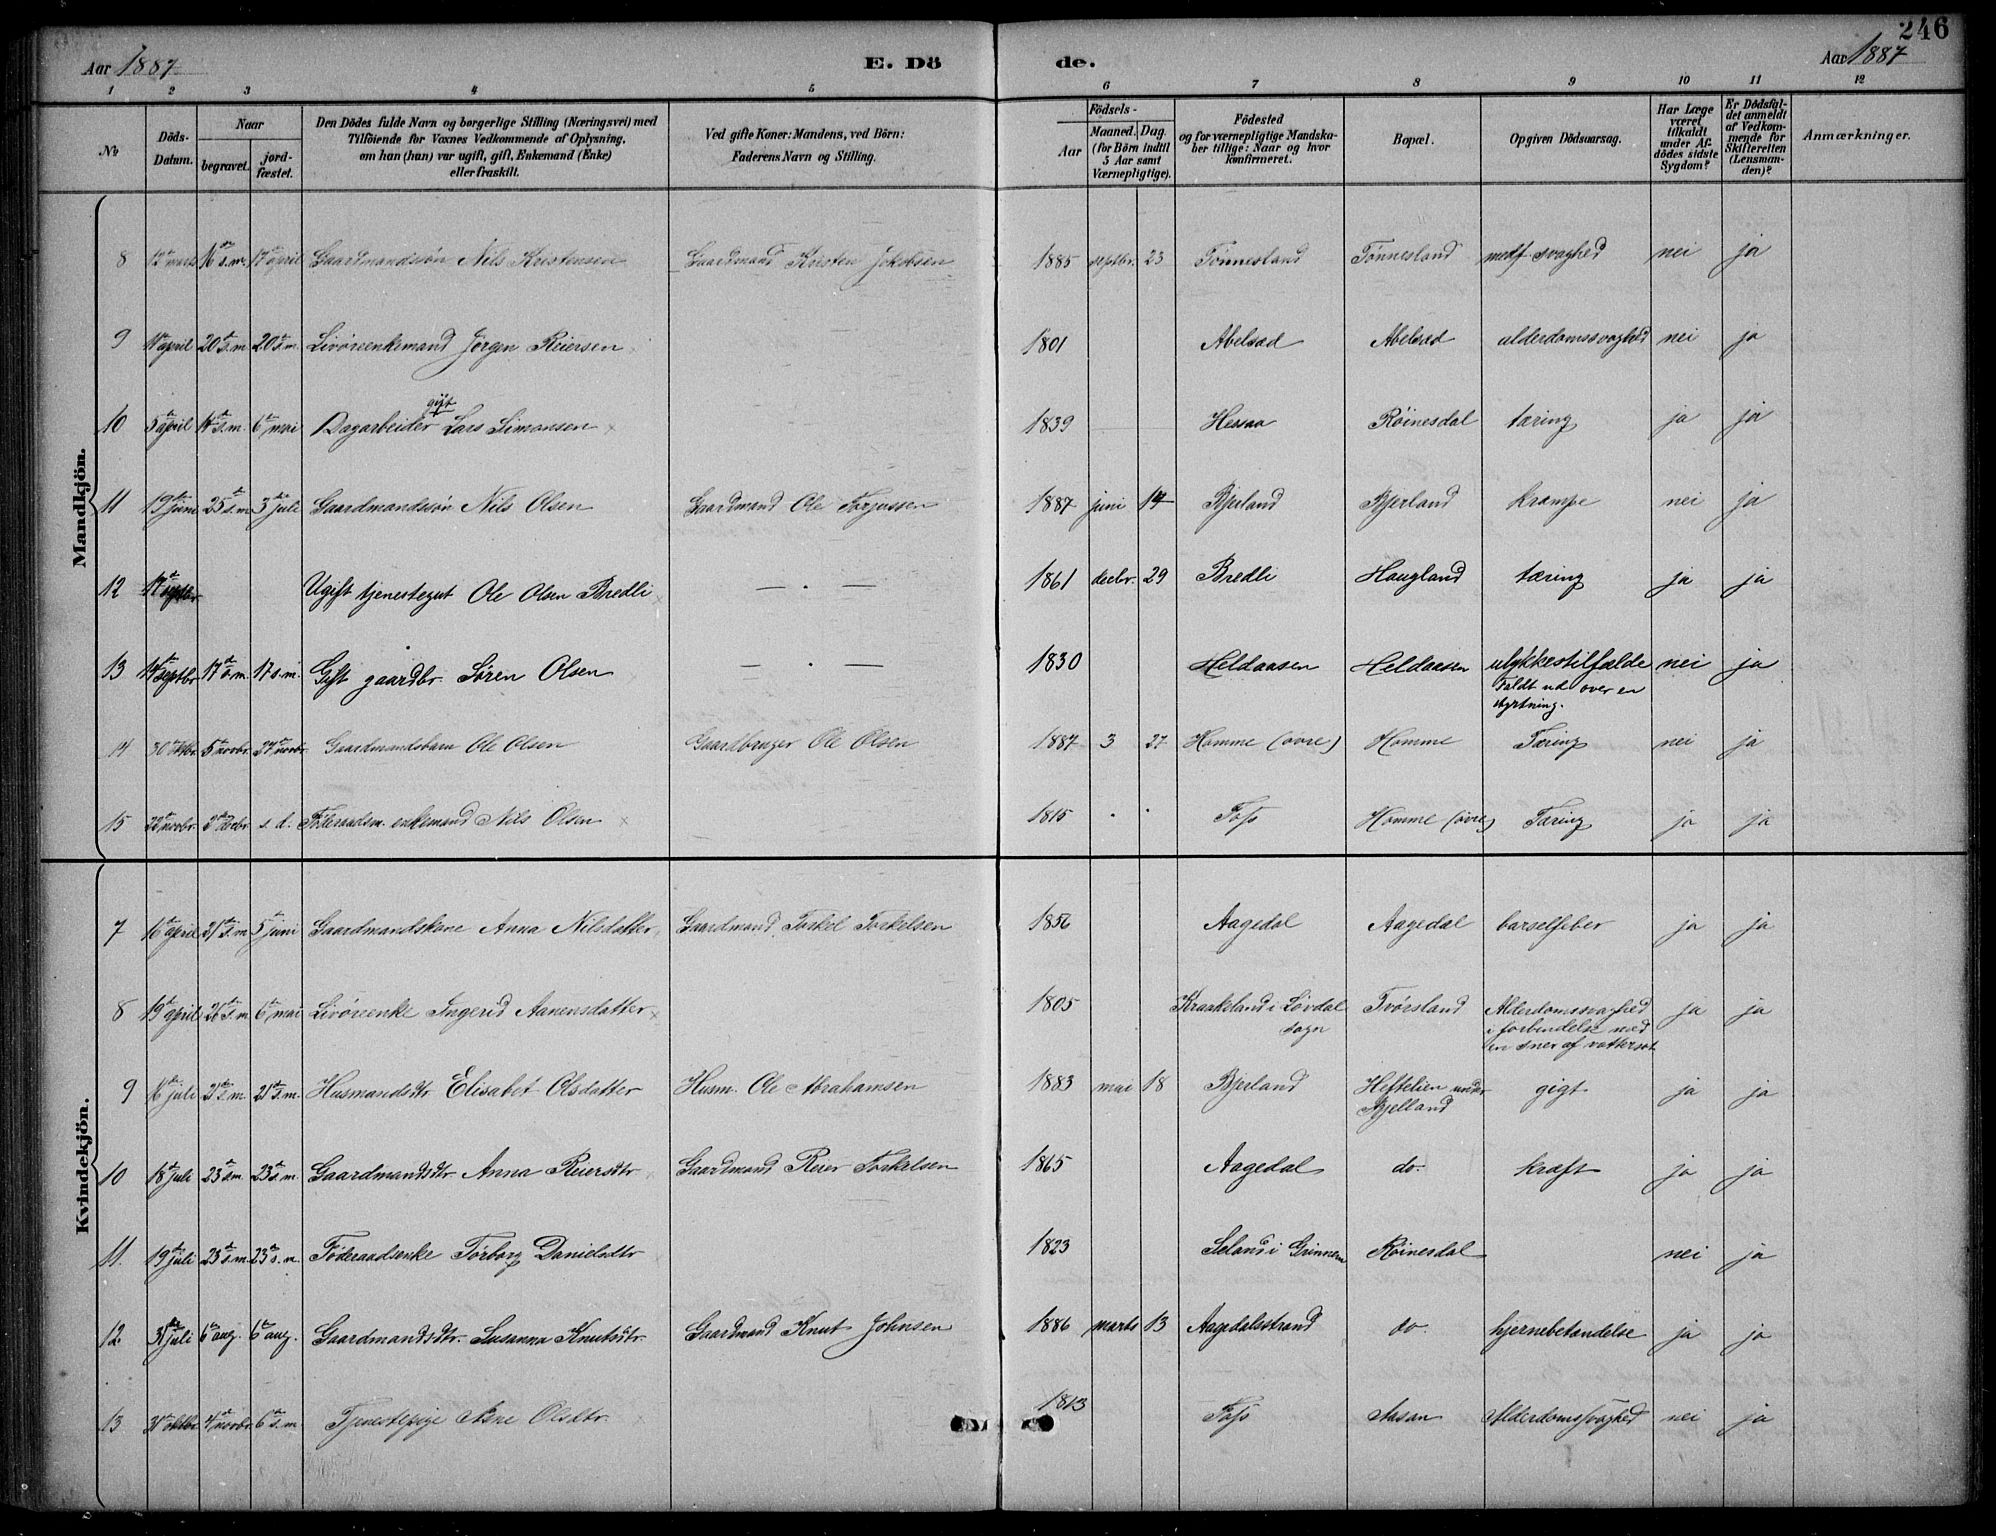 246
Aar 1887 E. Dö de. Aar 1887
1 2 3 4 5 6 7 8 9 10 11 12
No Döds-Datum. Naar begravet. jord-fæstet. Den Dödes fulde Navn og borgerlige Stilling (Næringsvei) med Tilföiende for Voxnes Vedkommende af Oplysning, om han (hun) var ugift, gift, Enkemand (Enke) eller fraskilt. Ved gifte Koner: Mandens, ved Börn: Faderens Navn og Stilling. Födsels- Aar Maaned. Dag. (for Börn indtil 5 Aar samt Værnepligtige). Födested og for værnepligtige Mandska-ber tillige: Naar og hvor konfirmeret. Bopæl. Opgiven Dödsaarsag. Har Læge været tilkaldt under Af-dödes sidste Sygdom? Er Dödsfal-det anmeldt af Vedkom-mende for Skifteretten (Lensman-den)? Anmærkninger.
Mandkjön.
8 12 marts 16 s.m. 17 april Gaardmandssön Nils Kristensen Gaardmand Kristen Jakobsen 1885 septbr. 23 Tønnesland Tønnesland medf. svaghed nei ja
9 april 20 s.m. 20 s.m. Livöreenkemand Jørgen Reiersen 1801 Abelsæd Abelsæd alderdomssvaghed nei ja
10 5 april 14 s.m. 6 mai Dagarbeider gift Lars Simonsen 1839 Hessaa Röinesdal tæring ja ja
11 19 juni 25 s.m. 3 juli Gaardmandssön Nils Olsen Gaardmand Ole Torjussen 1887 juni 14 Bjerland Bjerland krampe nei ja
12 17 septbr Ugift tjenestegut Ole Olsen Bredli — . — 1861 decbr. 29 Bredli Haugland tæring ja ja
13 14 septbr 17 s.m. 17 s.m. Gift gaardbr. Søren Olsen — . — 1830 Heldaasen Heldaasen ulykkestilfælde nei ja
Faldt ud over en styrtning.
14 30 oktbr 5 novbr 27 novbr Gaardmandsbarn Ole Olsen Gaardbruger Ole Olsen 1887 3 27 Homme (øvre) Homme Tæring nei ja
15 22 novbr 3 decbr s. d. Föderaadsm. enkemand Nils Olsen 1815 Foss Homme (øvre) Tæring ja ja
Kvindekjön.
7 16 april 21 s.m 5 juni Gaardmandskone Anna Nilsdatter Gaardmand Torkel Torkelsen 1856 Aagedal Aagedal barselfeber ja ja
8 19 april 26 s.m 6 mai Livöreenke Ingerid Aanensdatter 1805 Kraakeland i Løvdal sogn Tvörsland Alderdomssvaghed i forbindelse med en snev af vattersot ja ja
9 16 juli 21 s.m. 21 s.m. Husmandsdtr Elisabet Olsdatter Husm. Ole Abrahamsen 1883 mai 18 Bjerland Heftelien under Bjelland gigt ja ja
10 18 juli 23 s.m. 23 s.m. Gaardmandsdtr. Anna Reiersdtr Gaardmand Reier Torkelsen 1865 Aagedal do. kræft ja ja
11. 19 juli 23 s.m. 23 s.m. Föderaadsenke Torborg Danielsdtr 1823 Seland i Grinnem Röinesdal nei ja
12 31 juli 6 aug. 6 aug. Gaardmandsdtr. Susanna Knutsdtr. Gaardmand Knut Johnsen 1886 marts 13 Aagedalsstrand do. hjernebetændelse ja ja
13 31 oktbr 4 novbr 6 s.m. Tjenestepige Olsdtr. 1813 Foss Aasan Alderdomssvaghed nei ja